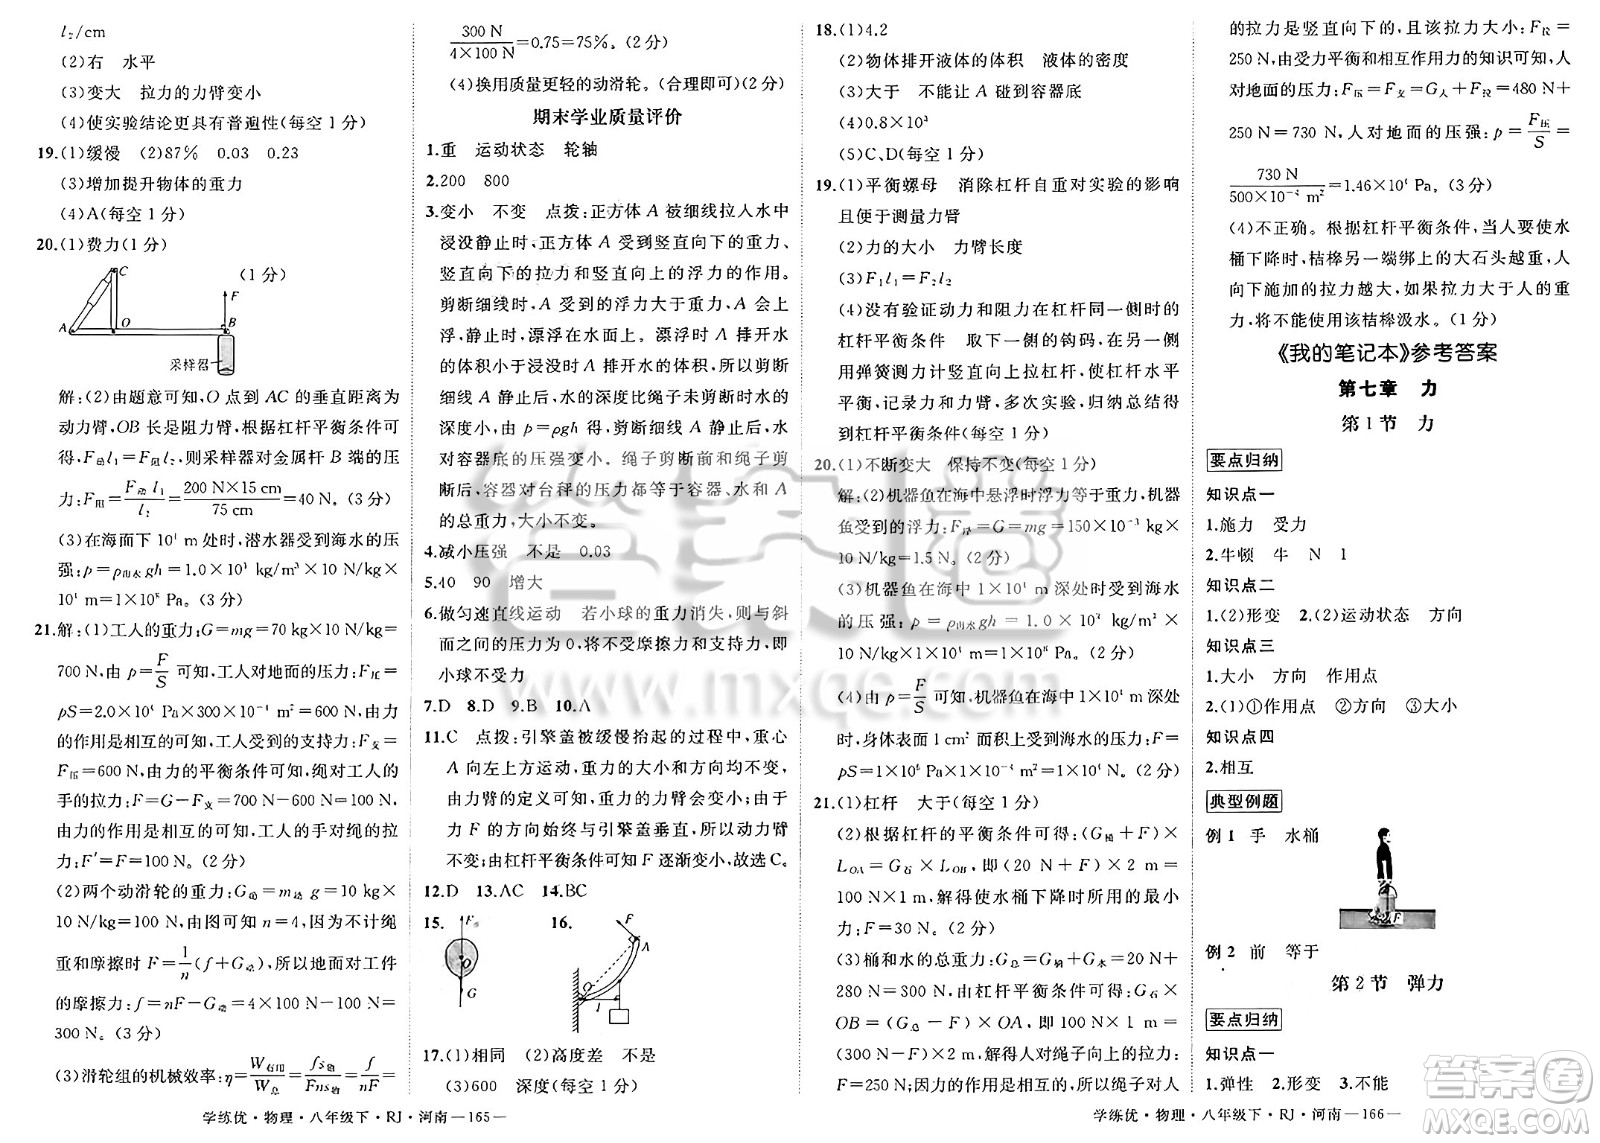 l₂/cm
(2)右 水平
(3)变大 拉力的力臂变小
(4)使实验结论更具有普遍性(每空1分)
19.(1)缓慢 (2)87% 0.03 0.23
(3)增加提升物体的重力
(4)A(每空1分)
20.(1)费力(1分)
C (1分)
F
A O B
采样器
解:(2)由题意可知,O点到AC的垂直距离为
动力臂,OB长是阻力臂,根据杠杆平衡条件可
得,F动l₁=F阻l₂,则采样器对金属杆B端的拉
力:F阻=F动l₁/l₂=200 N×15 cm/75 cm=40 N。(3分)
(3)在海面下10⁴ m处时,潜水器受到海水的压
强:p=ρ海水gh=1.0×10³ kg/m³×10 N/kg×
10⁴ m=1×10⁸ Pa。(2分)
21.解:(1)工人的重力:G=mg=70 kg×10 N/kg=
700 N,由p=F/S可知,工人对地面的压力:F压=
pS=2.0×10⁴ Pa×300×10⁻⁴ m²=600 N,由力
的作用是相互的可知,工人受到的支持力:F支=
F压=600 N,由力的平衡条件可知,绳对工人的
手的拉力:F=G-F支=700 N-600 N=100 N,
由力的作用是相互的可知,工人的手对绳的拉
力:F′=F=100 N。(2分)
(2)两个动滑轮的重力:G动=m动g=10 kg×
10 N/kg=100 N,由图可知n=4,因为不计绳
重和摩擦时F=1/n(f+G动),所以地面对工件
的摩擦力:f=nF-G动=4×100 N-100 N=
300 N。(3分)
(3)滑轮组的机械效率:η=W有用/W总=fs物/Fns物=f/nF=
学练优·物理·八年级下·RJ·河南—165—
300 N/4×100 N=0.75=75%。(2分)
(4)换用质量更轻的动滑轮。(合理即可)(2分)
期末学业质量评价
1.重 运动状态 轮轴
2.200 800
3.变小 不变 点拨:正方体A被细线拉入水中
浸没静止时,正方体A受到竖直向下的重力、
竖直向下的拉力和竖直向上的浮力的作用。
剪断细线时,A受到的浮力大于重力,A会上
浮,静止时,漂浮在水面上。漂浮时A排开水
的体积小于浸没时A排开水的体积,所以剪断
细线A静止后,水的深度比绳子未剪断时水的
深度小,由p=ρgh得,剪断细线A静止后,水
对容器底的压强变小。绳子剪断前和绳子剪
断后,容器对台秤的压力都等于容器、水和A
的总重力,大小不变。
4.减小压强 不是 0.03
5.40 90 增大
6.做匀速直线运动 若小球的重力消失,则与斜
面之间的压力为0,将不受摩擦力和支持力,即
小球不受力
7.D 8.D 9.B 10.A
11.C 点拨:引擎盖被缓慢抬起的过程中,重心
A向左上方运动,重力的大小和方向均不变,
由力臂的定义可知,重力的力臂会变小;由于
力F的方向始终与引擎盖垂直,所以动力臂
不变;由杠杆平衡条件可知F逐渐变小,故选C。
12.D 13.AC 14.BC
15. F O G 16. F A O l
17.(1)相同 (2)高度差 不是
(3)600 深度(每空1分)
18.(1)4.2
(2)物体排开液体的体积 液体的密度
(3)大于 不能让A碰到容器底
(4)0.8×10³
(5)C、D(每空1分)
19.(1)平衡螺母 消除杠杆自重对实验的影响
且便于测量力臂
(2)力的大小 力臂长度
(3)F₁l₁=F₂l₂
(4)没有验证动力和阻力在杠杆同一侧时的
杠杆平衡条件 取下一侧的钩码,在另一侧
用弹簧测力计竖直向上拉杠杆,使杠杆水平
平衡,记录力和力臂,多次实验,归纳总结得
到杠杆平衡条件(每空1分)
20.(1)不断变大 保持不变(每空1分)
解:(2)机器鱼在海中悬浮时浮力等于重力,机器
鱼受到的浮力:F浮=G=mg=150×10⁻³ kg×
10 N/kg=1.5 N。(2分)
(3)机器鱼在海中1×10⁴ m深处时受到海水
的压强:p=ρ海水gh=1.0×10³ kg/m³×
10 N/kg×1×10⁴ m=1×10⁸ Pa。(2分)
(4)由p=F/S可知,机器鱼在海中1×10⁴ m深处
时,身体表面1 cm²面积受到海水的压力:F=
pS=1×10⁸ Pa×1×10⁻⁴ m²=1×10⁴ N。(2分)
21.(1)杠杆 大于(每空1分)
(2)根据杠杆的平衡条件可得:(G桶+F)×
LOA=G石×LOB,即(20 N+F)×2 m=
100 N×1 m,解得使水桶下降时所用的最小力:
F=30 N。(2分)
(3)桶和水的总重力:G总=G桶+G水=20 N+
280 N=300 N,由杠杆平衡条件可得:G石×
OB=(G总-F)×OA,即100 N×1 m=
(300 N-F)×2 m,解得人对绳子向上的拉力:
F=250 N;因为力的作用是相互的,所以绳子对人
学练优·物理·八年级下·RJ·河南—166—
的拉力是竖直向下的,且该拉力大小:F拉=
250 N,由受力平衡和相互作用力的知识可知,人
对地面的压力:F压=F支=G人+F拉=480 N+
250 N=730 N,人对地面的压强:p=F压/S=
730 N/500×10⁻⁴ m²=1.46×10⁴ Pa。(3分)
(4)不正确。根据杠杆平衡条件,为了使水
桶下降时,桔槔另一端绑上的大石头越重,人
向下施加的拉力越大,如果拉力大于人的重
力,将不能使用该桔槔汲水。(1分)
《我的笔记本》参考答案
第七章 力
第1节 力
要点归纳
知识点一
1.施力 受力
2.牛顿 牛 N 1
知识点二
1.(2)形变 2.(2)运动状态 方向
知识点三
1.大小 方向 作用点
2.(1)①作用点 ②方向 ③大小
知识点四
2.相互
典型例题
例1 手 水桶
F
例2 前 等于
第2节 弹力
要点归纳
知识点一
1.弹性 2.形变 3.不能
答案圈
www.mxqe.com
答案圈
MXQE.COM